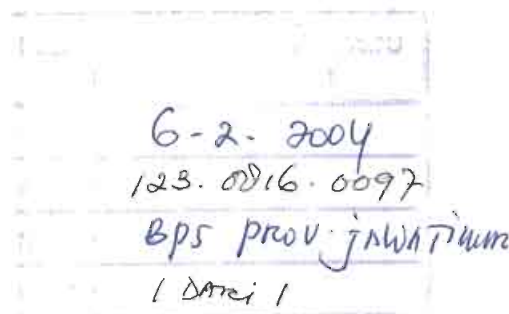 6-2-2004
123.0816.0097
BPS prov. jawa Timur
1 DARI 1